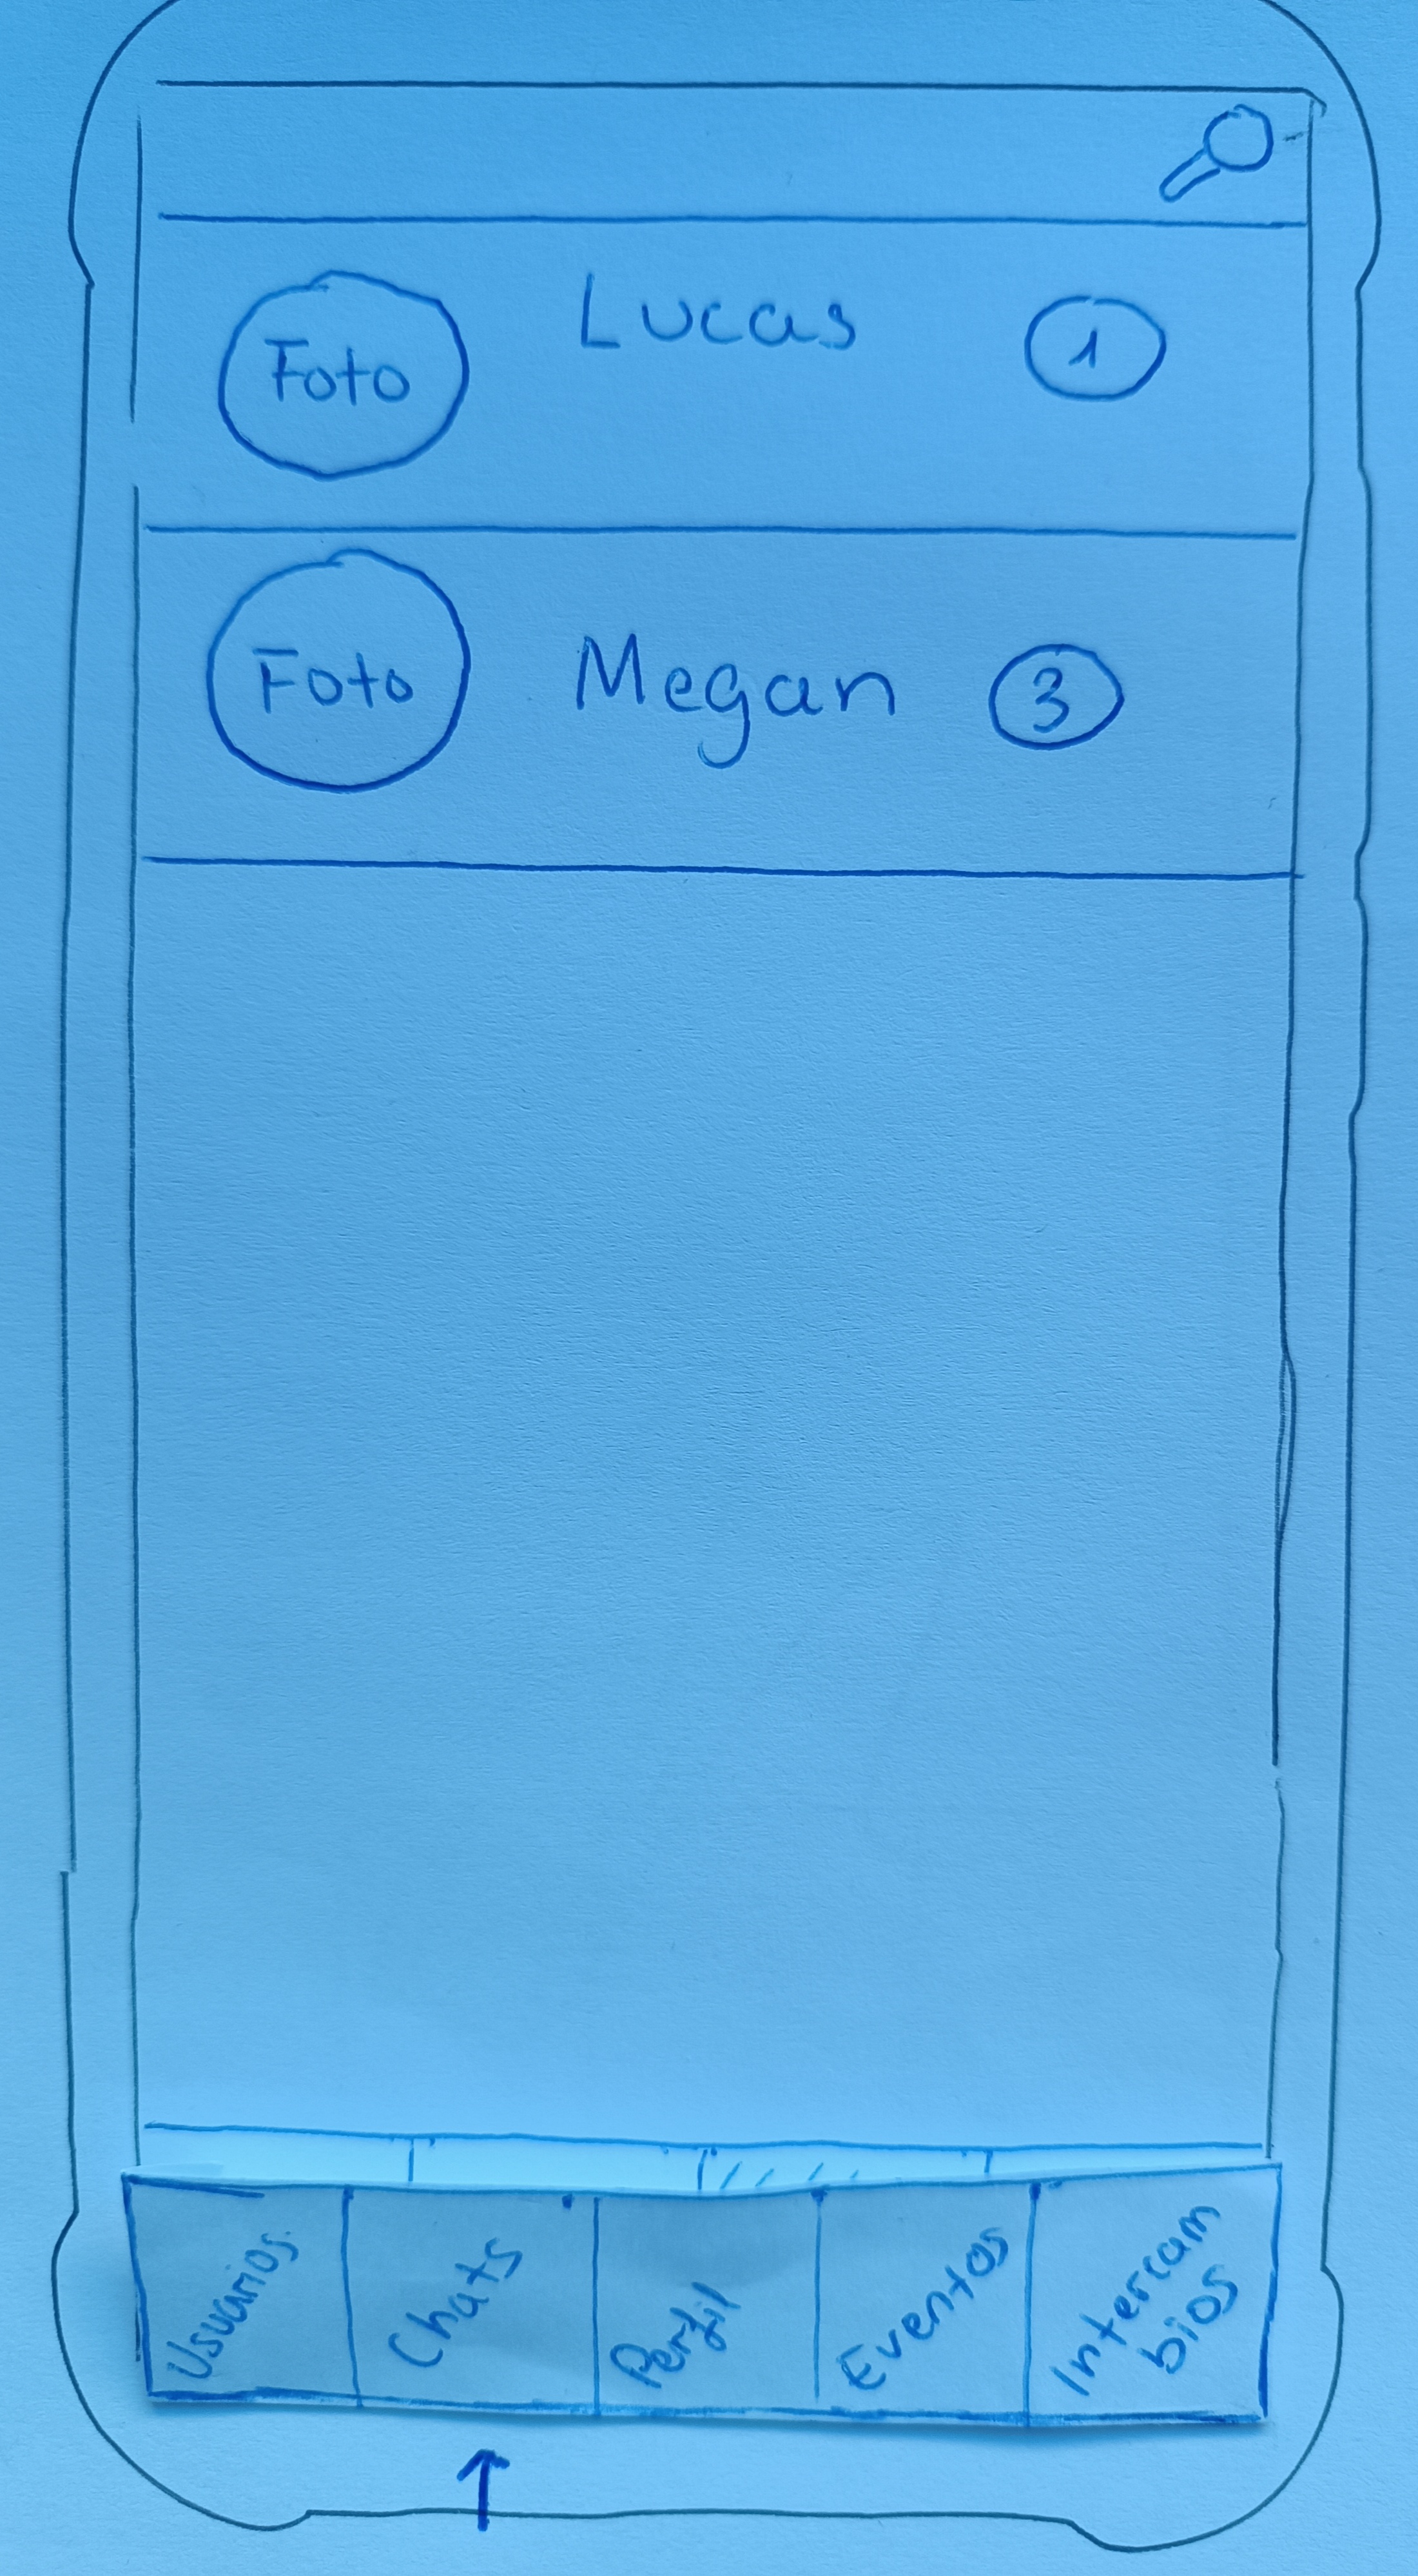 Lucas
Foto
1
Foto
Megan
3
Usuarios
Chats
Perfil
Eventos
Intercam
bios